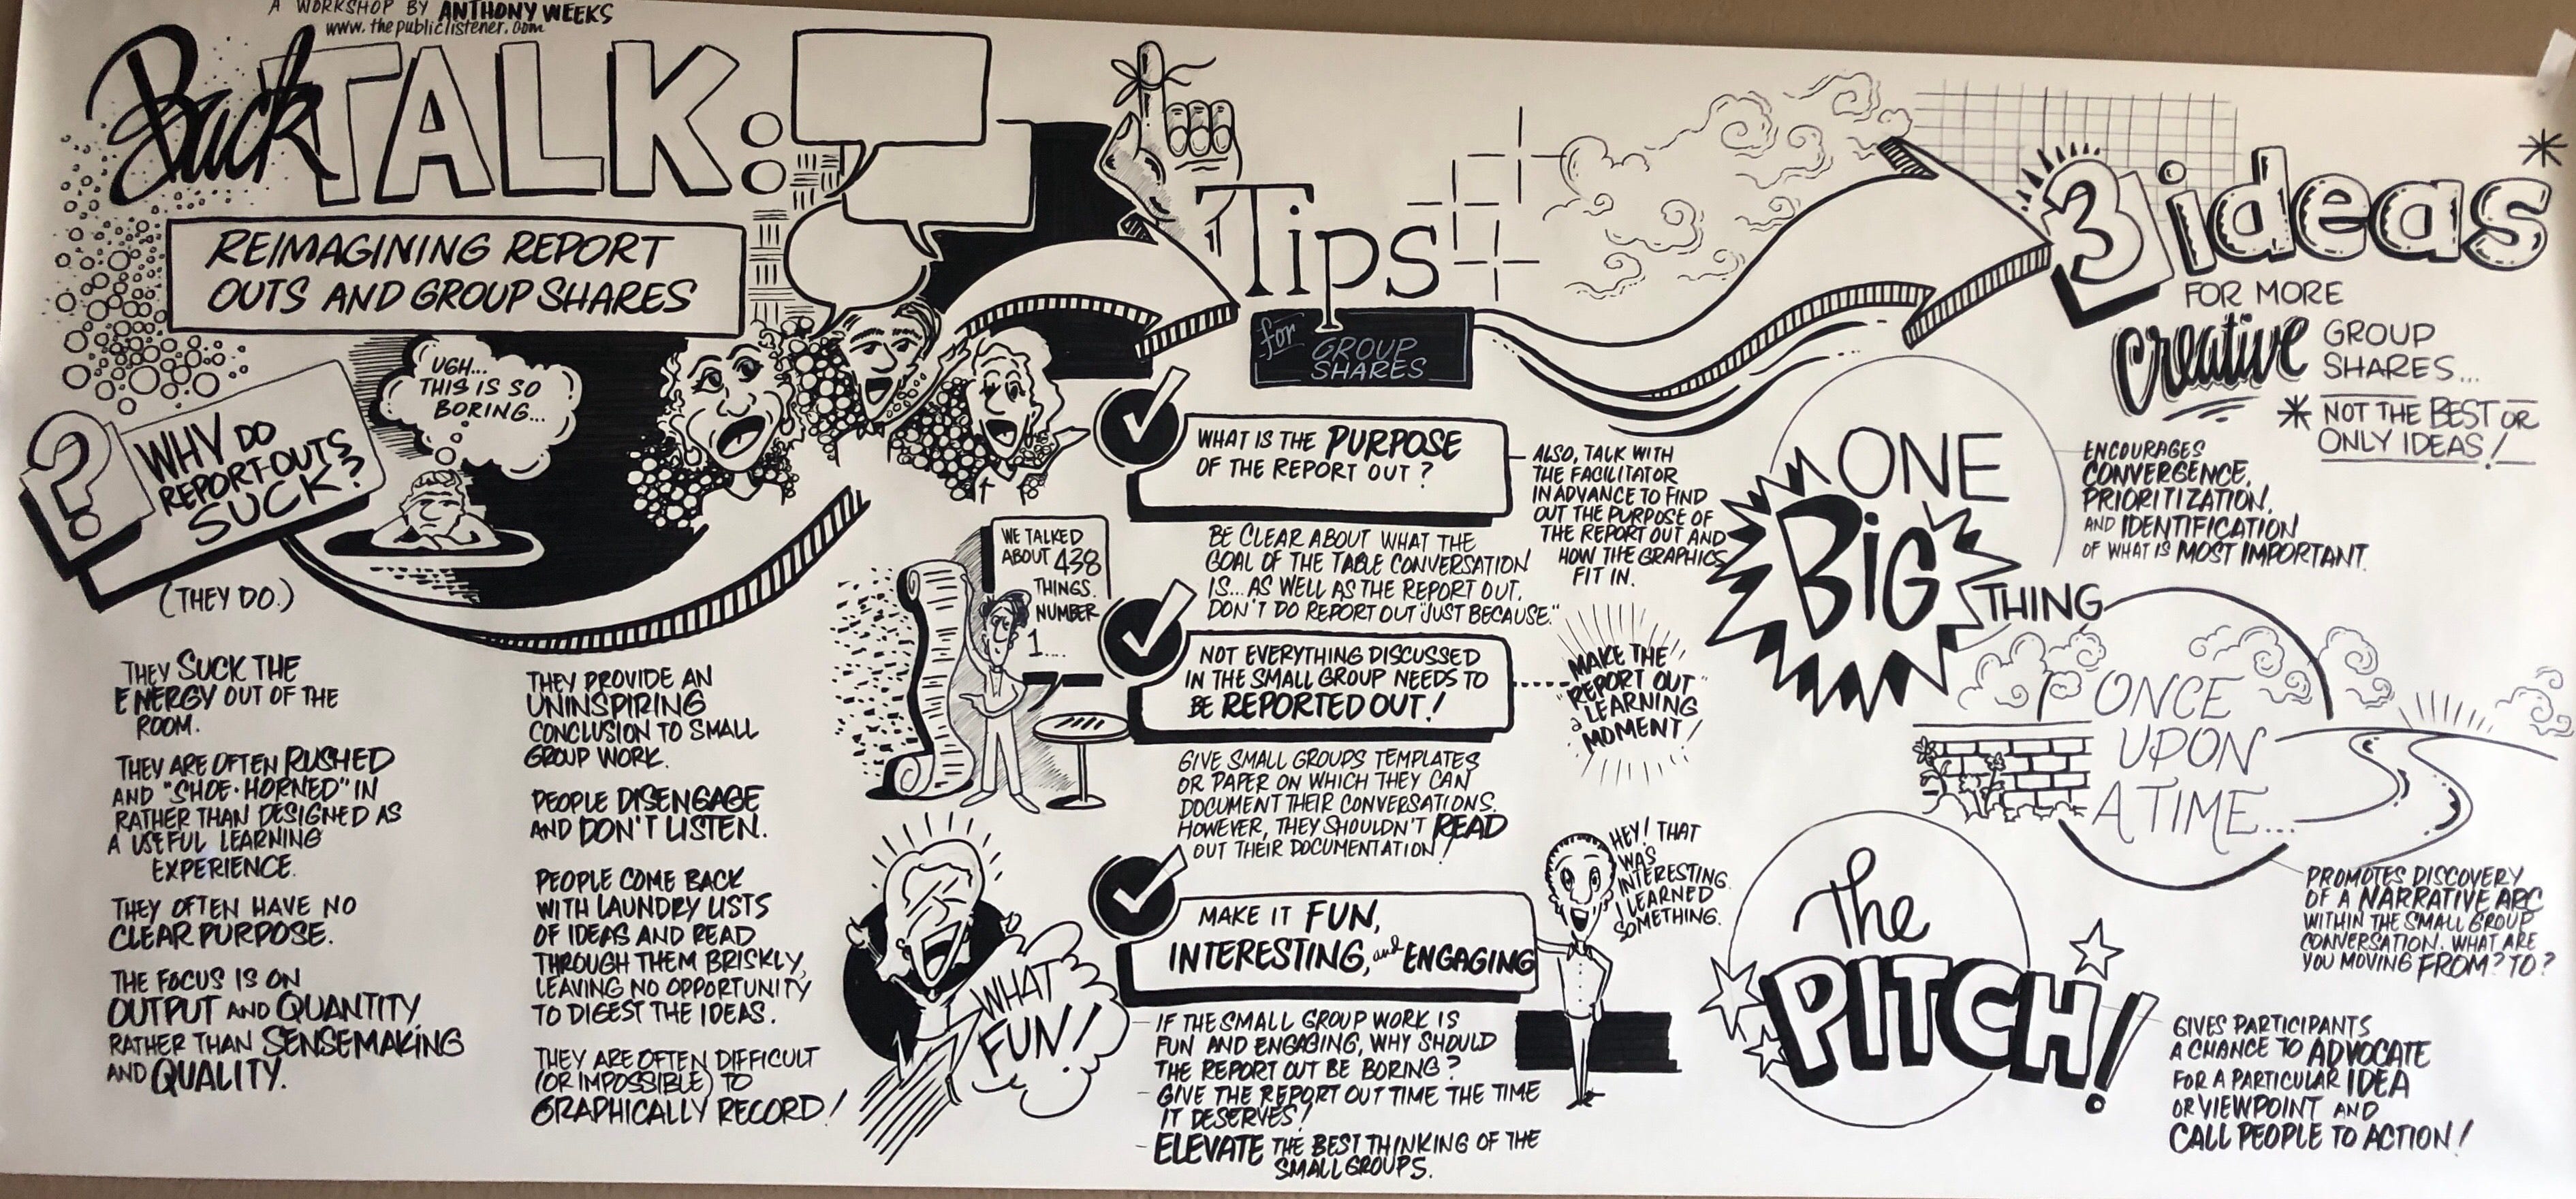 A WORKSHOP BY ANTHONY WEEKS
www.thepubliclistener.com
Back TALK:
REIMAGINING REPORT
OUTS AND GROUP SHARES
?
WHY DO
REPORT-OUTS
SUCK?
(THEY DO.)
UGH...
THIS IS SO
BORING...
THEY SUCK THE
ENERGY OUT OF THE
ROOM.
THEY ARE OFTEN RUSHED
AND "SHOE-HORNED" IN
RATHER THAN DESIGNED AS
A USEFUL LEARNING
EXPERIENCE.
THEY OFTEN HAVE NO
CLEAR PURPOSE.
THE FOCUS IS ON
OUTPUT AND QUANTITY
RATHER THAN SENSEMAKING
AND QUALITY.
THEY PROVIDE AN
UNINSPIRING
CONCLUSION TO SMALL
GROUP WORK.
PEOPLE DISENGAGE
AND DON'T LISTEN.
PEOPLE COME BACK
WITH LAUNDRY LISTS
OF IDEAS AND READ
THROUGH THEM BRISKLY,
LEAVING NO OPPORTUNITY
TO DIGEST THE IDEAS.
THEY ARE OFTEN DIFFICULT
(OR IMPOSSIBLE) TO
GRAPHICALLY RECORD!
Tips
for GROUP
SHARES
WHAT IS THE PURPOSE
OF THE REPORT OUT?
ALSO, TALK WITH
THE FACILITATOR
IN ADVANCE TO FIND
OUT THE PURPOSE OF
THE REPORT OUT AND
HOW THE GRAPHICS
FIT IN.
BE CLEAR ABOUT WHAT THE
GOAL OF THE TABLE CONVERSATION
IS... AS WELL AS THE REPORT OUT.
DON'T DO REPORT OUT "JUST BECAUSE."
WE TALKED
ABOUT 438
THINGS.
NUMBER
1....
NOT EVERYTHING DISCUSSED
IN THE SMALL GROUP NEEDS TO
BE REPORTED OUT!
MAKE THE
"REPORT OUT"
a LEARNING
MOMENT!
GIVE SMALL GROUPS TEMPLATES
OR PAPER ON WHICH THEY CAN
DOCUMENT THEIR CONVERSATIONS.
HOWEVER, THEY SHOULDN'T READ
OUT THEIR DOCUMENTATION!
MAKE IT FUN,
INTERESTING, and ENGAGING
HEY! THAT
WAS
INTERESTING.
I LEARNED
SOMETHING.
WHAT
FUN!
- IF THE SMALL GROUP WORK IS
FUN AND ENGAGING, WHY SHOULD
THE REPORT OUT BE BORING?
- GIVE THE REPORT OUT TIME THE TIME
IT DESERVES!
- ELEVATE THE BEST THINKING OF THE
SMALL GROUPS.
3 ideas*
FOR MORE
creative GROUP
SHARES...
* NOT THE BEST OR
ONLY IDEAS!
ONE
BIG
THING
ENCOURAGES
CONVERGENCE,
PRIORITIZATION,
AND IDENTIFICATION
OF WHAT IS MOST IMPORTANT.
ONCE
UPON
A TIME...
PROMOTES DISCOVERY
OF A NARRATIVE ARC
WITHIN THE SMALL GROUP
CONVERSATION. WHAT ARE
YOU MOVING FROM? TO?
The
PITCH!
GIVES PARTICIPANTS
A CHANCE TO ADVOCATE
FOR A PARTICULAR IDEA
OR VIEWPOINT AND
CALL PEOPLE TO ACTION!